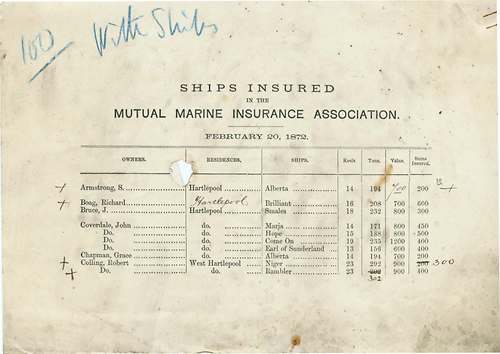 100 With Ships
SHIPS INSURED
IN THE
MUTUAL MARINE INSURANCE ASSOCIATION.
FEBRUARY 20, 1872.
OWNERS. RESIDENCES. SHIPS. Keels Tons. Value. Sums Insured.
+ Armstrong, S. Hartlepool Alberta 14 194 700 200 +
+ Boag, Richard Hartlepool Brilliant 16 208 700 600
Bruce, J. Hartlepool Smales 18 232 800 300
Coverdale, John do. Marja 14 171 800 450
Do. do. Hope 15 188 800 500
Do. do. Come On 19 235 1200 400
Do. do. Earl of Sunderland 13 156 600 400
Chapman, Grace do. Alberta 14 194 700 200
+ Colling, Robert West Hartlepool Niger 23 292 900 200 300
+ Do. do. Rambler 23 900 400
302